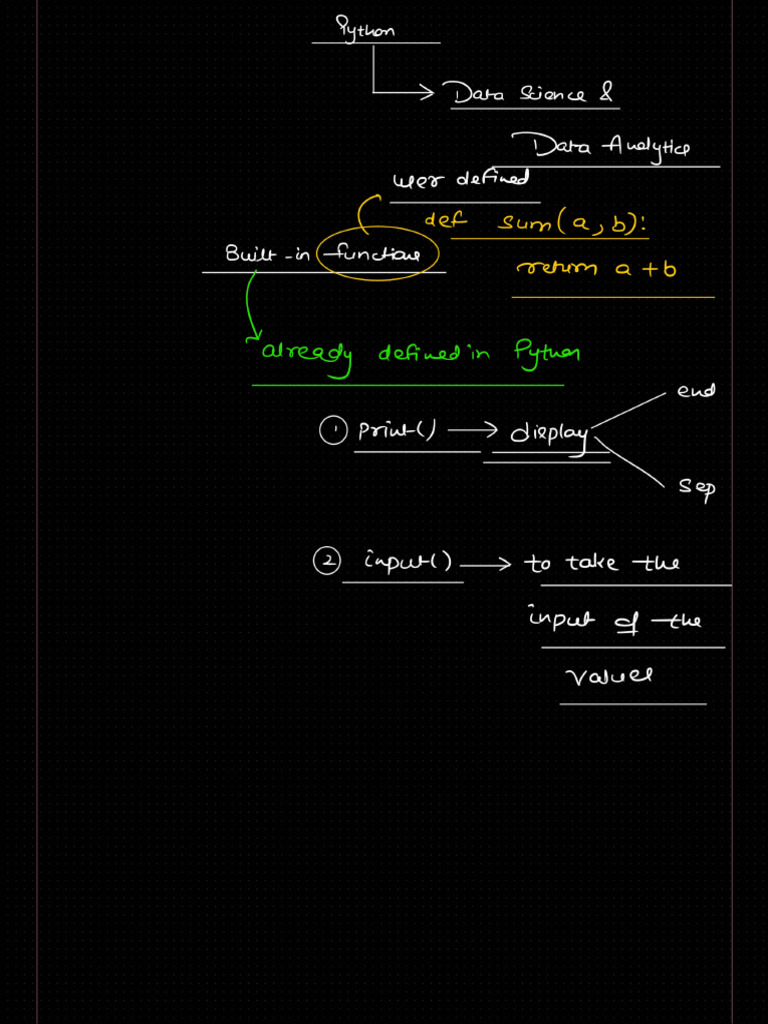 Python
Data Science &
Data Analytics
user defined
def sum(a, b):
Built-in functions
return a + b
already defined in Python
end
① print() → display
sep
② input() → to take the
input of the
values